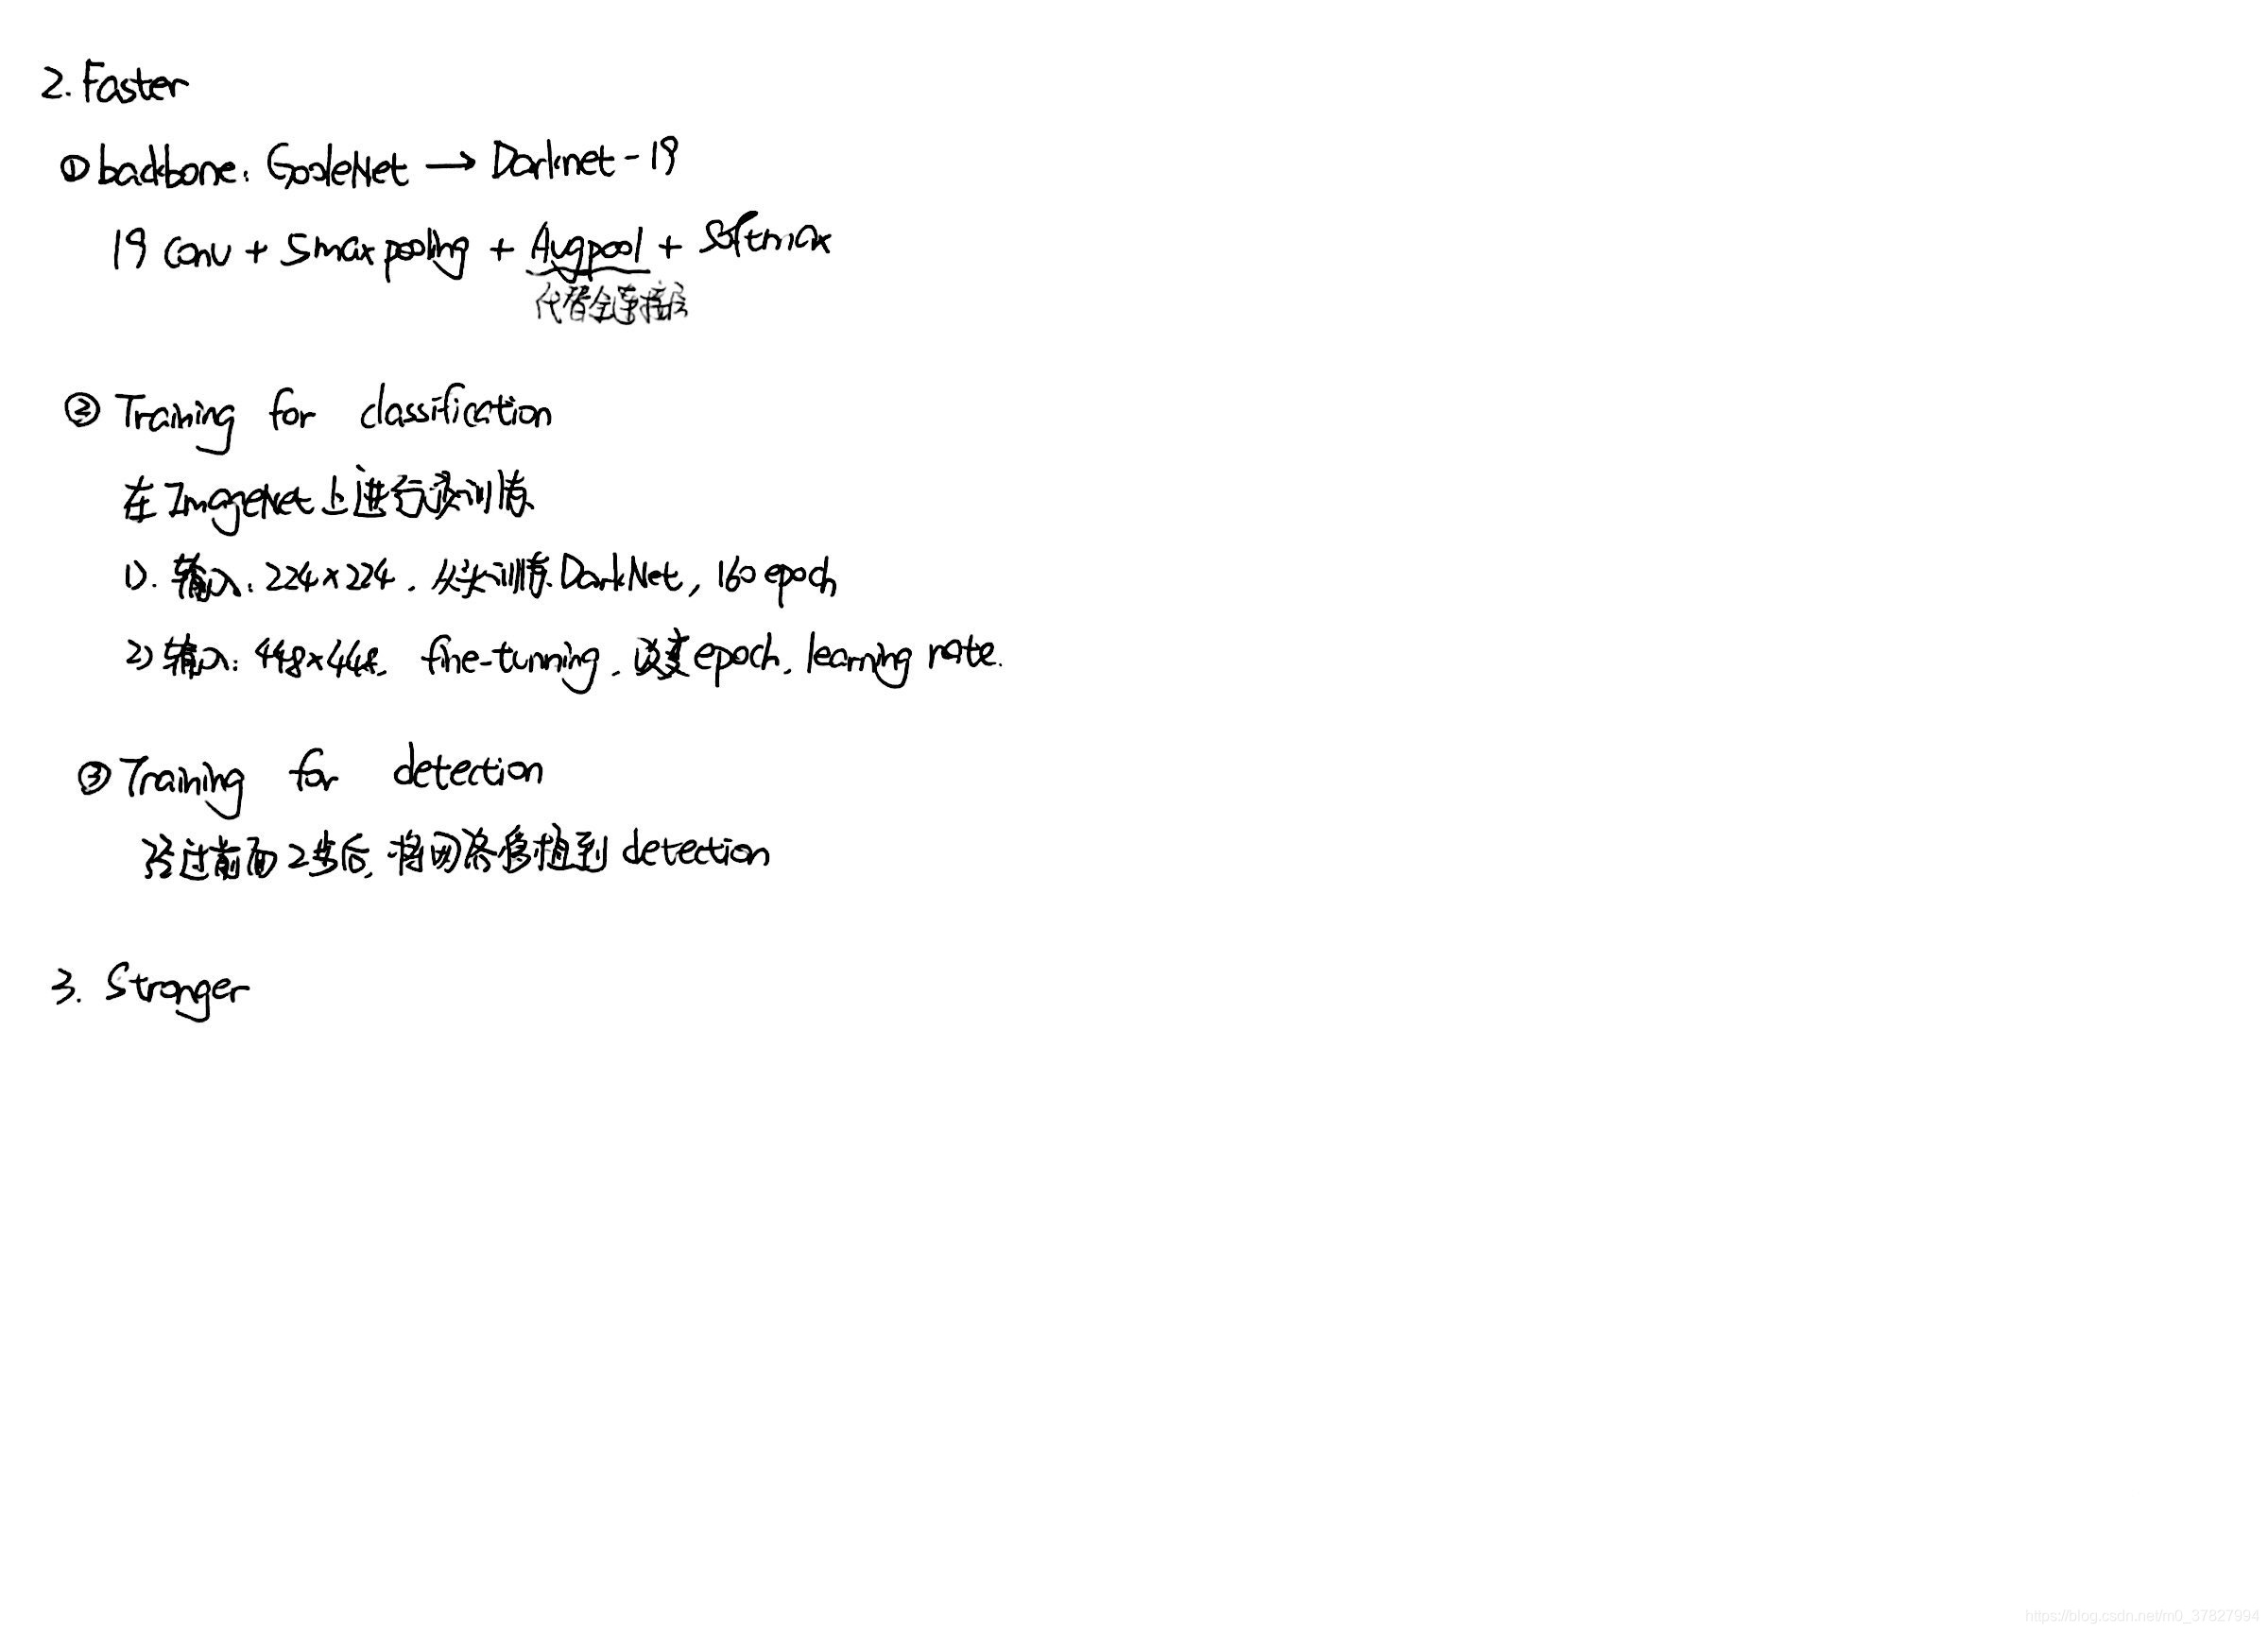 2. Faster
① backbone: GooleNet → Darknet-19
19 Conv + 5 maxpooling + Avgpool + Softmax
代替全连接层
② Training for classification
在ImageNet上进行预训练
1). 输入: 224×224. 从头训练DarkNet, 160 epoch
2) 输入: 448×448. fine-tunning. 改变epoch. learning rate.
③ Training for detection
经过前面2步后, 将网络移植到detection
3. Stronger
https://blog.csdn.net/m0_37827994